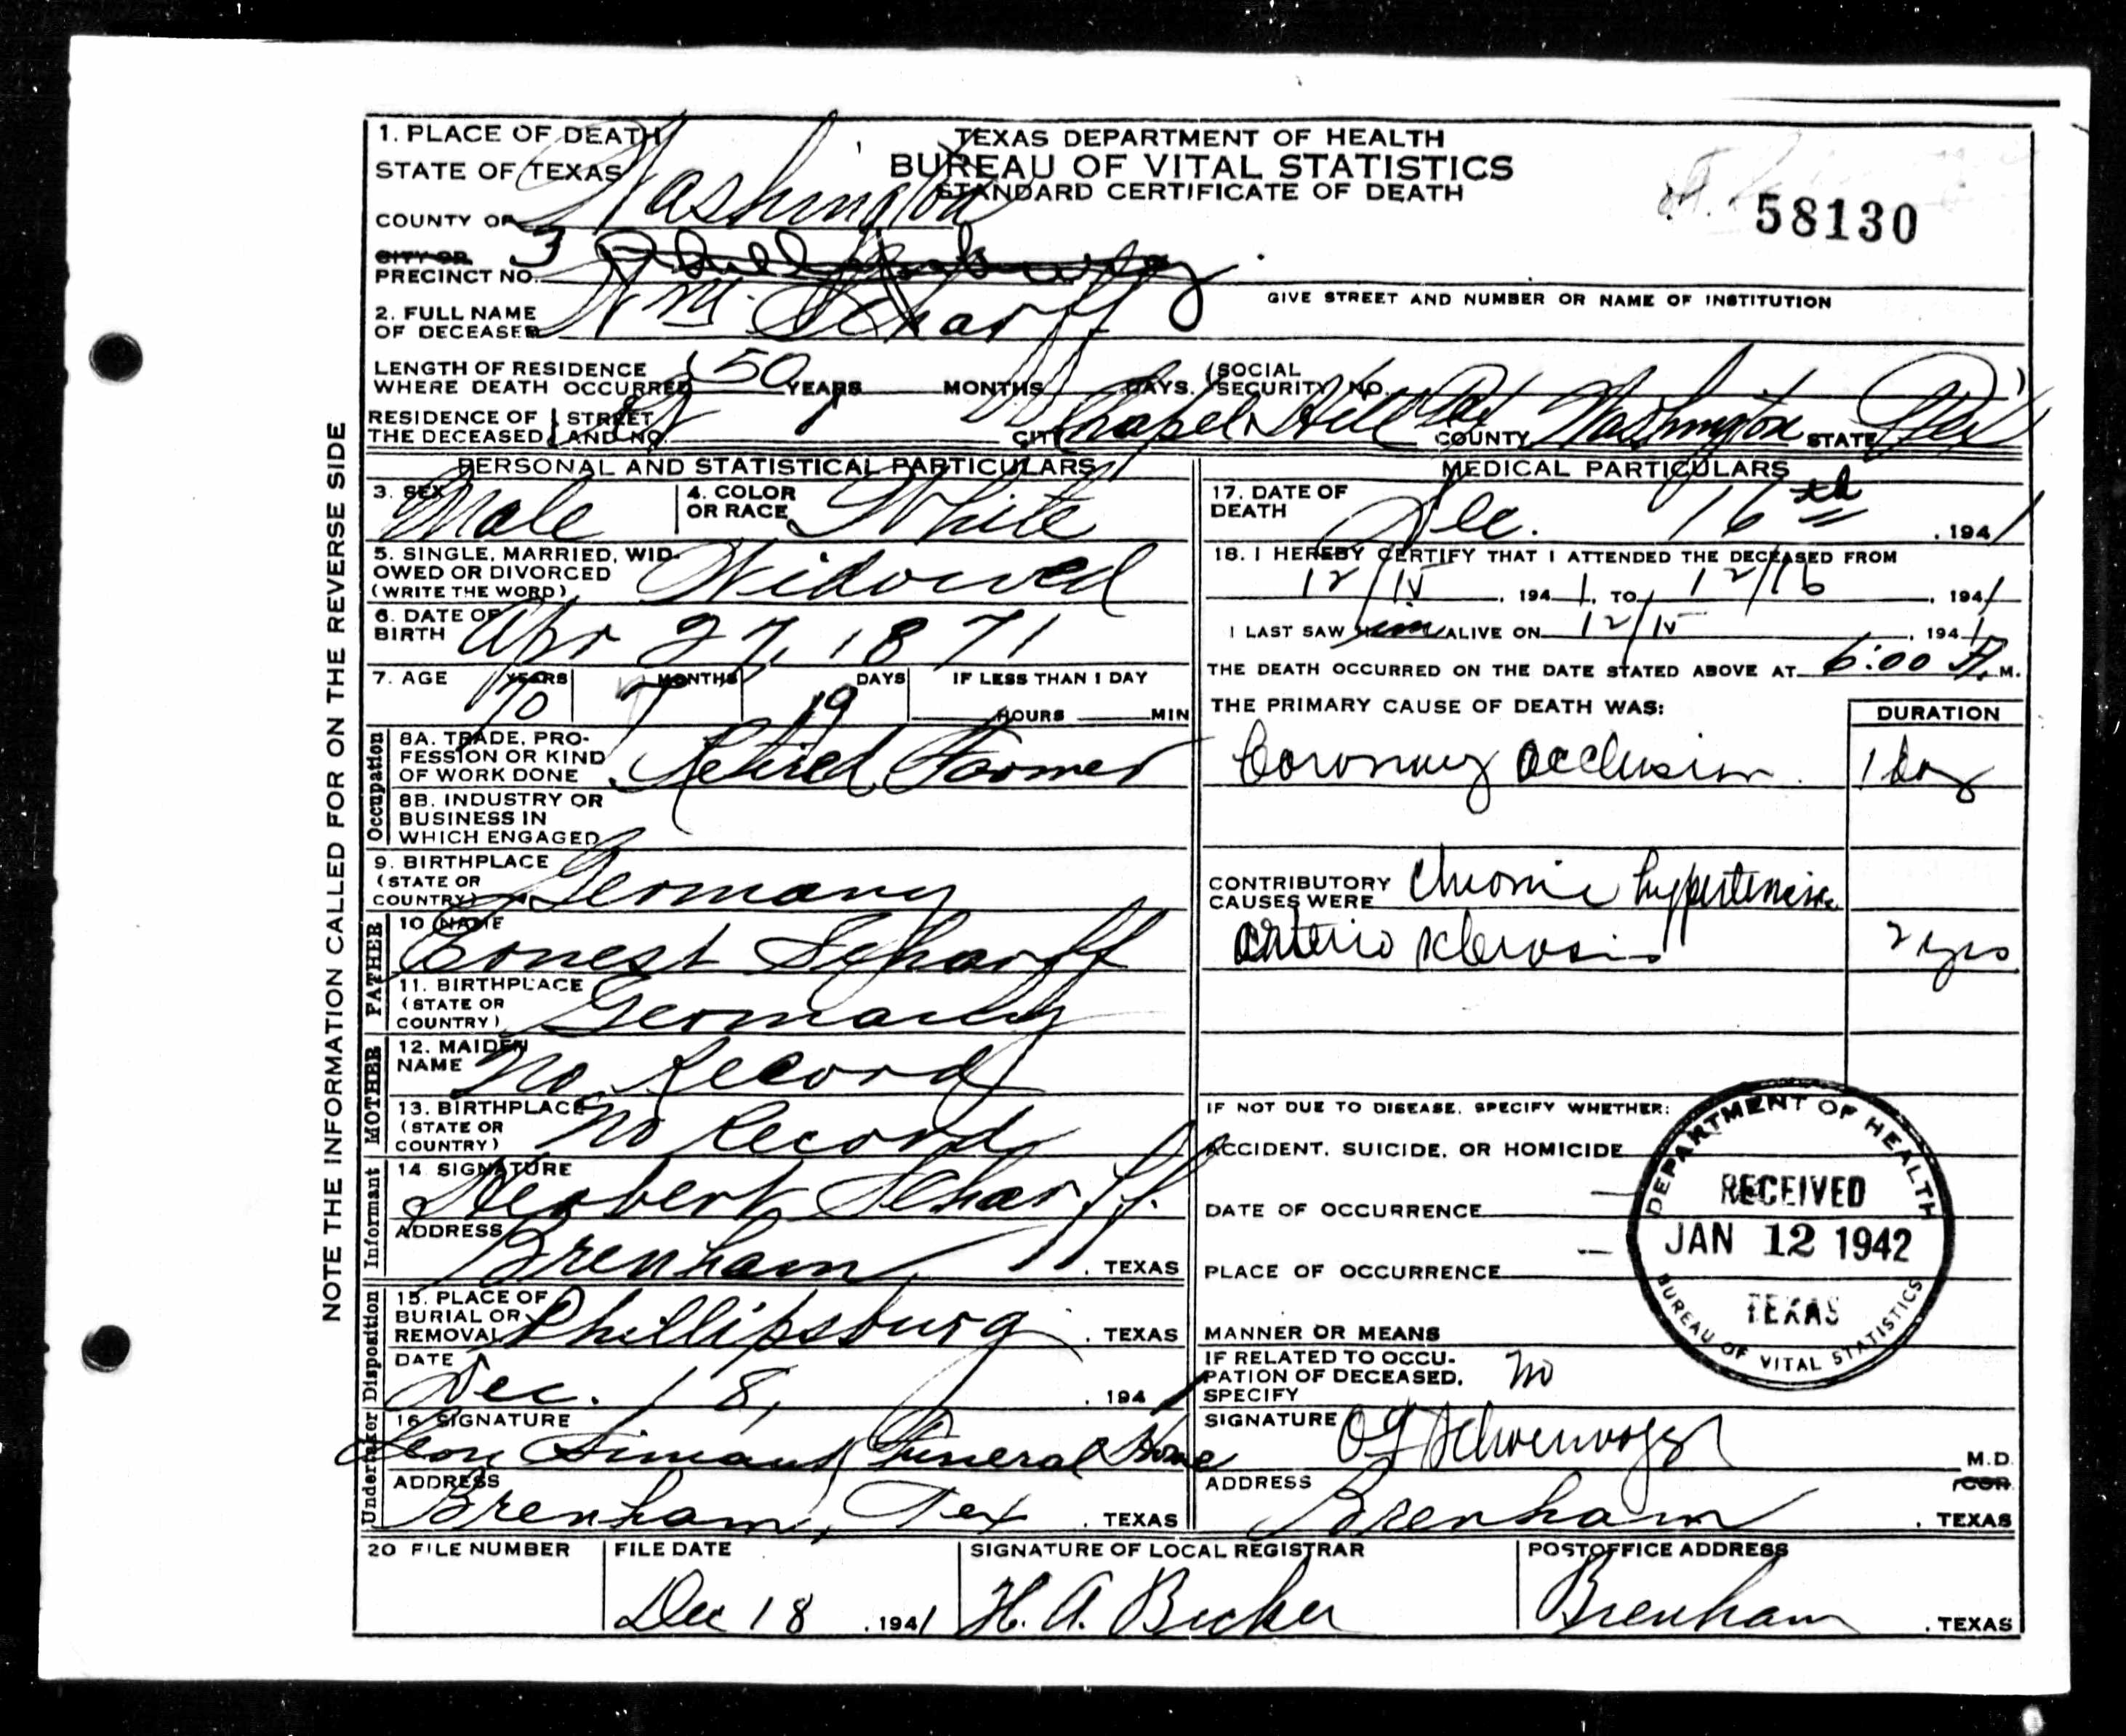 1. PLACE OF DEATH
STATE OF TEXAS
COUNTY OF Washington
TEXAS DEPARTMENT OF HEALTH
BUREAU OF VITAL STATISTICS
STANDARD CERTIFICATE OF DEATH
58130
CITY OR
PRECINCT NO. 3 Phillipsburg
GIVE STREET AND NUMBER OR NAME OF INSTITUTION
2. FULL NAME
OF DECEASED Wm. Scharff
LENGTH OF RESIDENCE
WHERE DEATH OCCURRED 50 YEARS MONTHS DAYS. (SOCIAL SECURITY NO. )
RESIDENCE OF THE DECEASED { STREET AND NO. 1 CITY Chapel Hill COUNTY Washington STATE Tex
PERSONAL AND STATISTICAL PARTICULARS
3. SEX Male 4. COLOR OR RACE White
5. SINGLE, MARRIED, WIDOWED OR DIVORCED
(WRITE THE WORD) Widowed
6. DATE OF
BIRTH Apr 27, 1871
7. AGE YEARS MONTHS DAYS IF LESS THAN 1 DAY
70 7 19 HOURS MIN
Occupation
8A. TRADE, PROFESSION OR KIND
OF WORK DONE Retired Farmer
8B. INDUSTRY OR
BUSINESS IN
WHICH ENGAGED
9. BIRTHPLACE
(STATE OR
COUNTRY) Germany
FATHER
10 NAME Ernest Scharff
11. BIRTHPLACE
(STATE OR
COUNTRY) Germany
MOTHER
12. MAIDEN
NAME No Record
13. BIRTHPLACE
(STATE OR
COUNTRY) No Record
Informant
14 SIGNATURE
Herbert Scharff.
ADDRESS Brenham . TEXAS
Disposition
15. PLACE OF
BURIAL OR
REMOVAL Phillipsburg . TEXAS
DATE
Dec. 18, . 1941
Undertaker
16. SIGNATURE
Leon Simank Funeral Home
ADDRESS
Brenham, Tex . TEXAS
MEDICAL PARTICULARS
17. DATE OF
DEATH Dec. 16th . 1941
18. I HEREBY CERTIFY THAT I ATTENDED THE DECEASED FROM
12/15 , 1941, TO 12/16 , 1941
I LAST SAW him ALIVE ON 12/15 , 1941
THE DEATH OCCURRED ON THE DATE STATED ABOVE AT 6:00 A. M.
THE PRIMARY CAUSE OF DEATH WAS: DURATION
Coronary occlusion 1 day
CONTRIBUTORY
CAUSES WERE chronic hypertensive
arterio sclerosis 2 yrs
IF NOT DUE TO DISEASE, SPECIFY WHETHER:
ACCIDENT, SUICIDE, OR HOMICIDE
DATE OF OCCURRENCE
PLACE OF OCCURRENCE
MANNER OR MEANS
IF RELATED TO OCCUPATION OF DECEASED,
SPECIFY no
DEPARTMENT OF HEALTH
RECEIVED
JAN 12 1942
TEXAS
BUREAU OF VITAL STATISTICS
SIGNATURE
M.D.
COR.
ADDRESS
Brenham . TEXAS
20 FILE NUMBER FILE DATE SIGNATURE OF LOCAL REGISTRAR POSTOFFICE ADDRESS
Dec 18 . 1941 H. A. Becker Brenham . TEXAS
NOTE THE INFORMATION CALLED FOR ON THE REVERSE SIDE